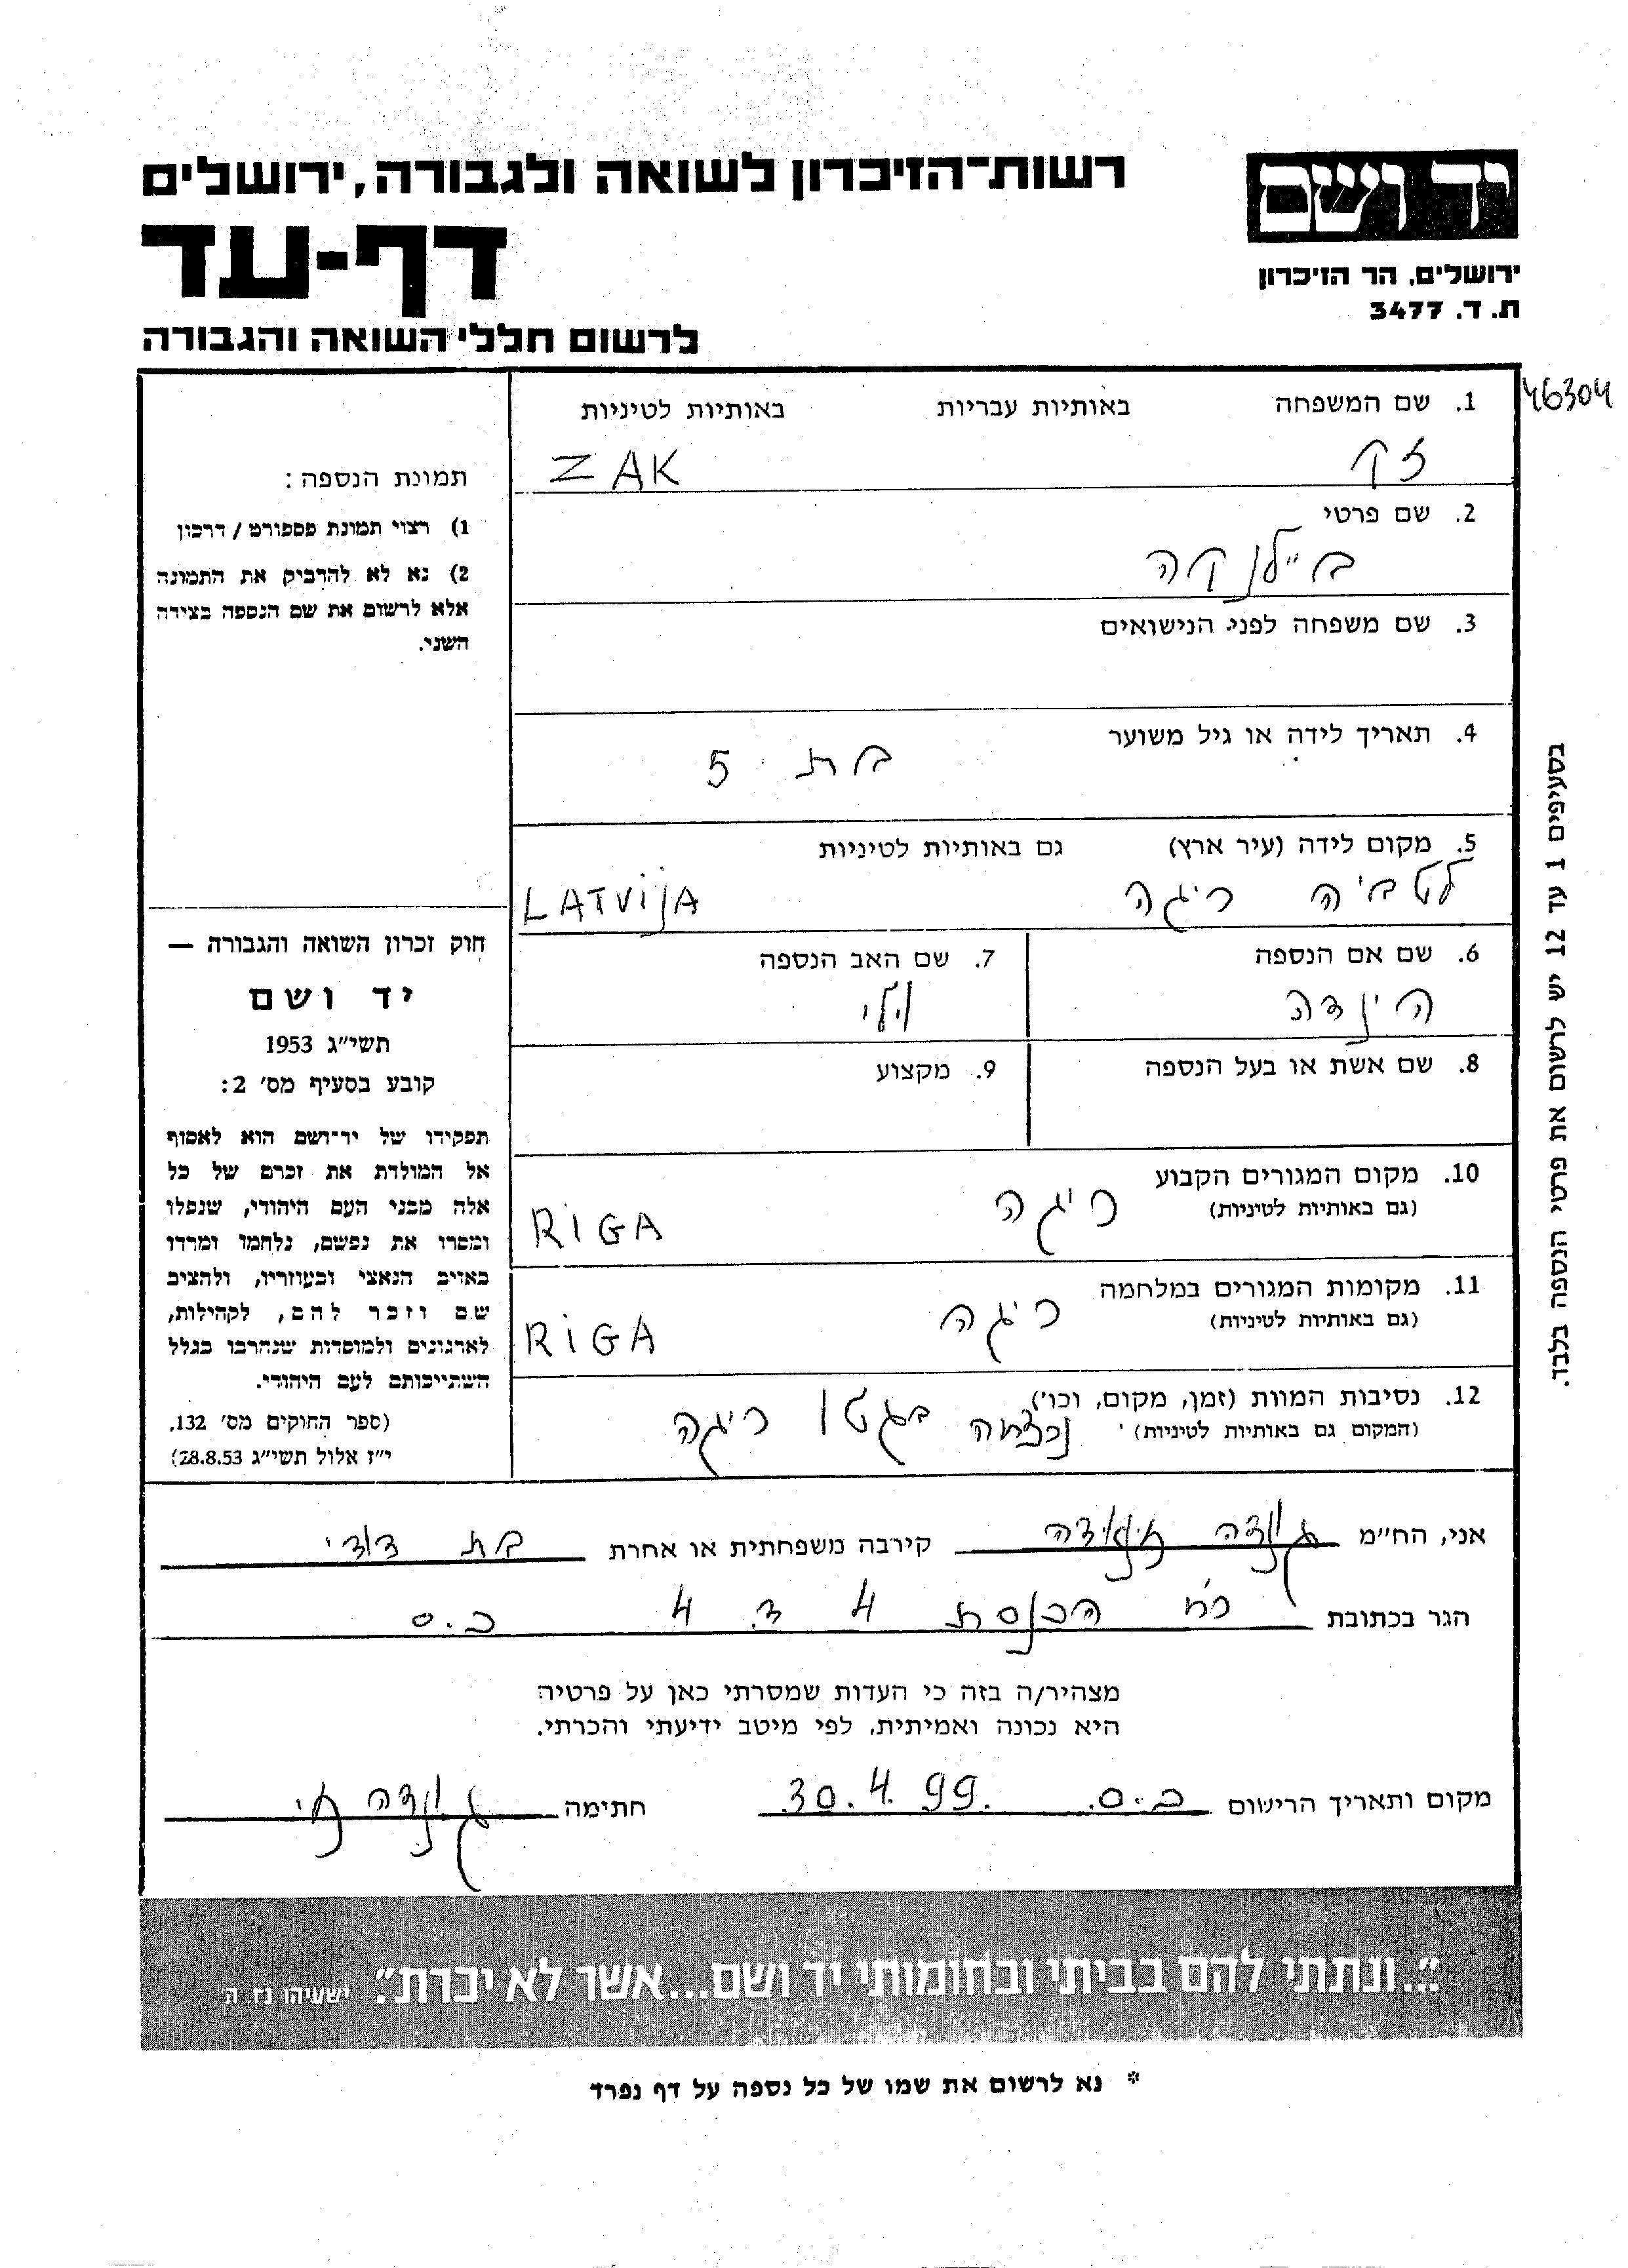 רשות־הזיכרון לשואה ולגבורה, ירושלים
דף-עד
לרשום חללי השואה והגבורה
יד ושם
ירושלים, הר הזיכרון
ת. ד. 3477
46304
1. שם המשפחה באותיות עבריות באותיות לטיניות
זק ZAK
2. שם פרטי
ביילנקה
3. שם משפחה לפני הנישואים
4. תאריך לידה או גיל משוער
בת 5
5. מקום לידה (עיר ארץ) גם באותיות לטיניות
לטביה ריגה LATViJA
6. שם אם הנספה 7. שם האב הנספה
הינדה וילי
8. שם אשת או בעל הנספה 9. מקצוע
10. מקום המגורים הקבוע
(גם באותיות לטיניות) ריגה RiGA
11. מקומות המגורים במלחמה
(גם באותיות לטיניות) ריגה RiGA
12. נסיבות המוות (זמן, מקום, וכו')
(המקום גם באותיות לטיניות) נרצחה בגטו ריגה
תמונת הנספה:
1) רצוי תמונת פספורט / דרכון
2) נא לא להדביק את התמונה
אלא לרשום את שם הנספה בצידה
השני.
חוק זכרון השואה והגבורה —
יד ושם
תשי״ג 1953
קובע בסעיף מס׳ 2:
תפקידו של יד־ושם הוא לאסוף
אל המולדת את זכרם של כל
אלה מבני העם היהודי, שנפלו
ומסרו את נפשם, נלחמו ומרדו
באויב הנאצי ובעוזריו, ולהציב
שם וזכר להם, לקהילות,
לארגונים ולמוסדות שנהרבו בגלל
השתייכותם לעם היהודי.
(ספר החוקים מס׳ 132,
י״ז אלול תשי״ג 28.8.53)
בסעיפים 1 עד 12 יש לרשום את פרטי הנספה בלבד.
אני, הח״מ קירבה משפחתית או אחרת בת דודי
הגר בכתובת רח הכנסת 4 ד. 4 כ.ס
מצהיר/ה בזה כי העדות שמסרתי כאן על פרטיה
היא נכונה ואמיתית, לפי מיטב ידיעתי והכרתי.
מקום ותאריך הרישום כ.ס. 30.4.99. חתימה
״...ונתתי להם בביתי ובחומותי יד ושם...אשר לא יכרת״. ישעיהו נו, ה
* נא לרשום את שמו של כל נספה על דף נפרד